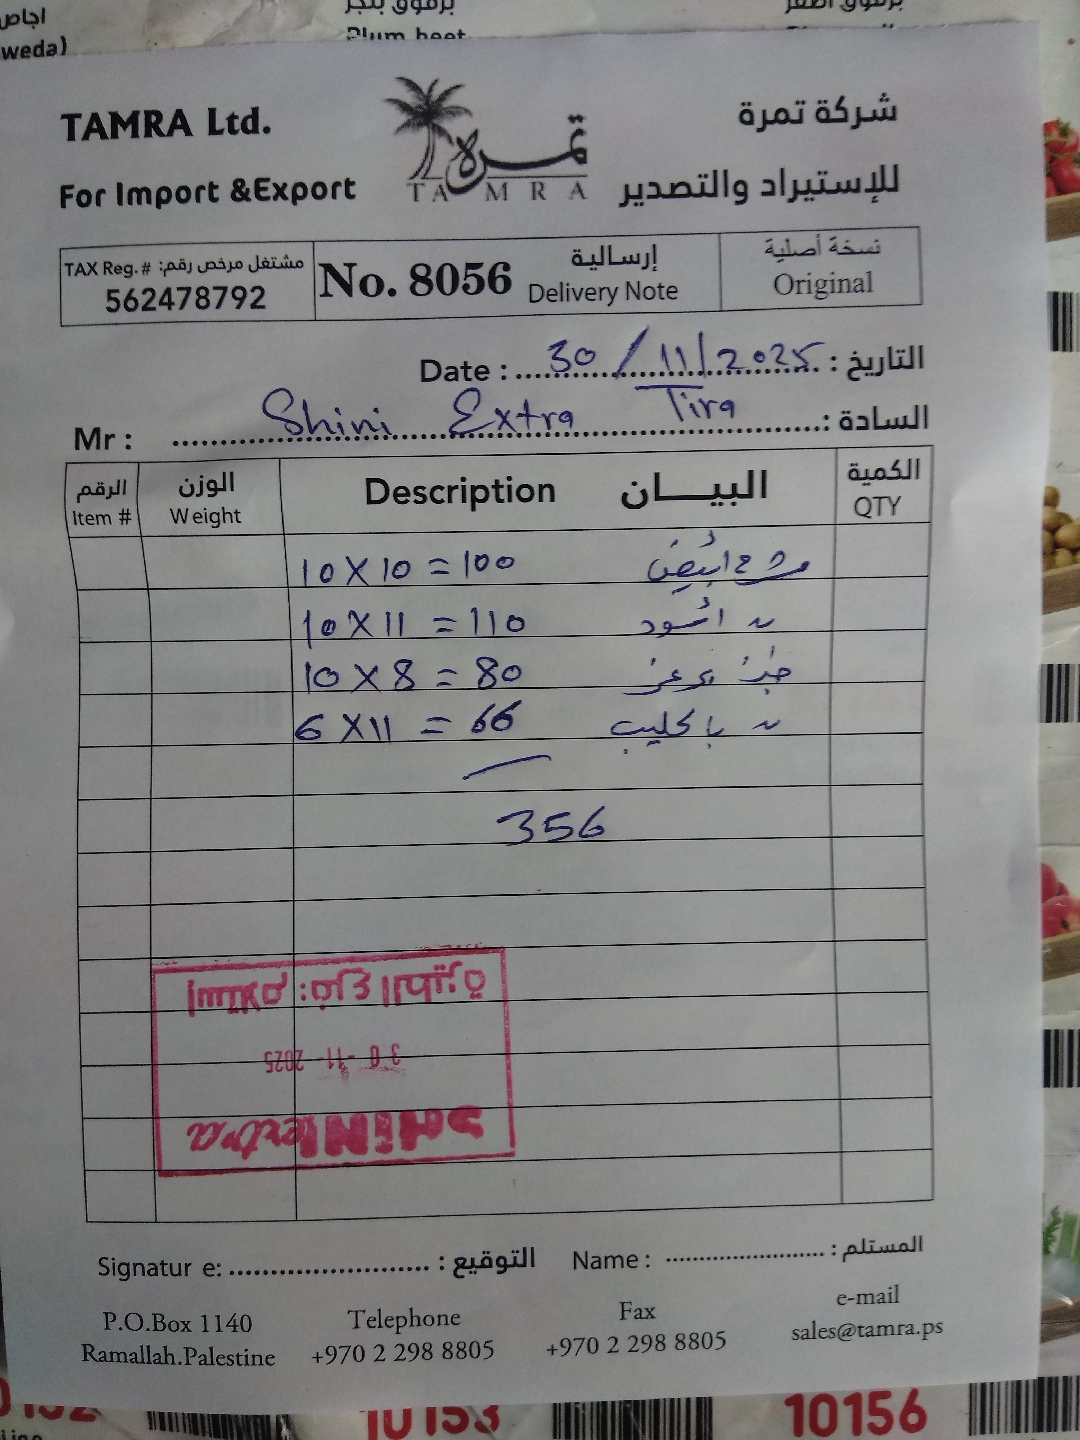 اجاص
برقوق بنجر
برقوق اصفر
weda)
Plum beet
TAMRA Ltd.
تمرة
شركة تمرة
For Import &Export
TAMRA
للإستيراد والتصدير
TAX Reg.# مشتغل مرخص رقم:
562478792
No. 8056
إرسالية
Delivery Note
نسخة أصلية
Original
Date : 30/11/2025 التاريخ :
Mr : Shini Extra Tira السادة :
الرقم
Item #
الوزن
Weight
Description البيـــان
الكمية
QTY
10 X 10 = 100 ابيض
10 X 11 = 110 اسود
10 X 8 = 80
6 X 11 = 66 بالحليب
356
30-11-2025
SHINI extra
Signatur e: التوقيع :
Name : المستلم :
P.O.Box 1140
Ramallah.Palestine
Telephone
+970 2 298 8805
Fax
+970 2 298 8805
e-mail
sales@tamra.ps
10153
10156